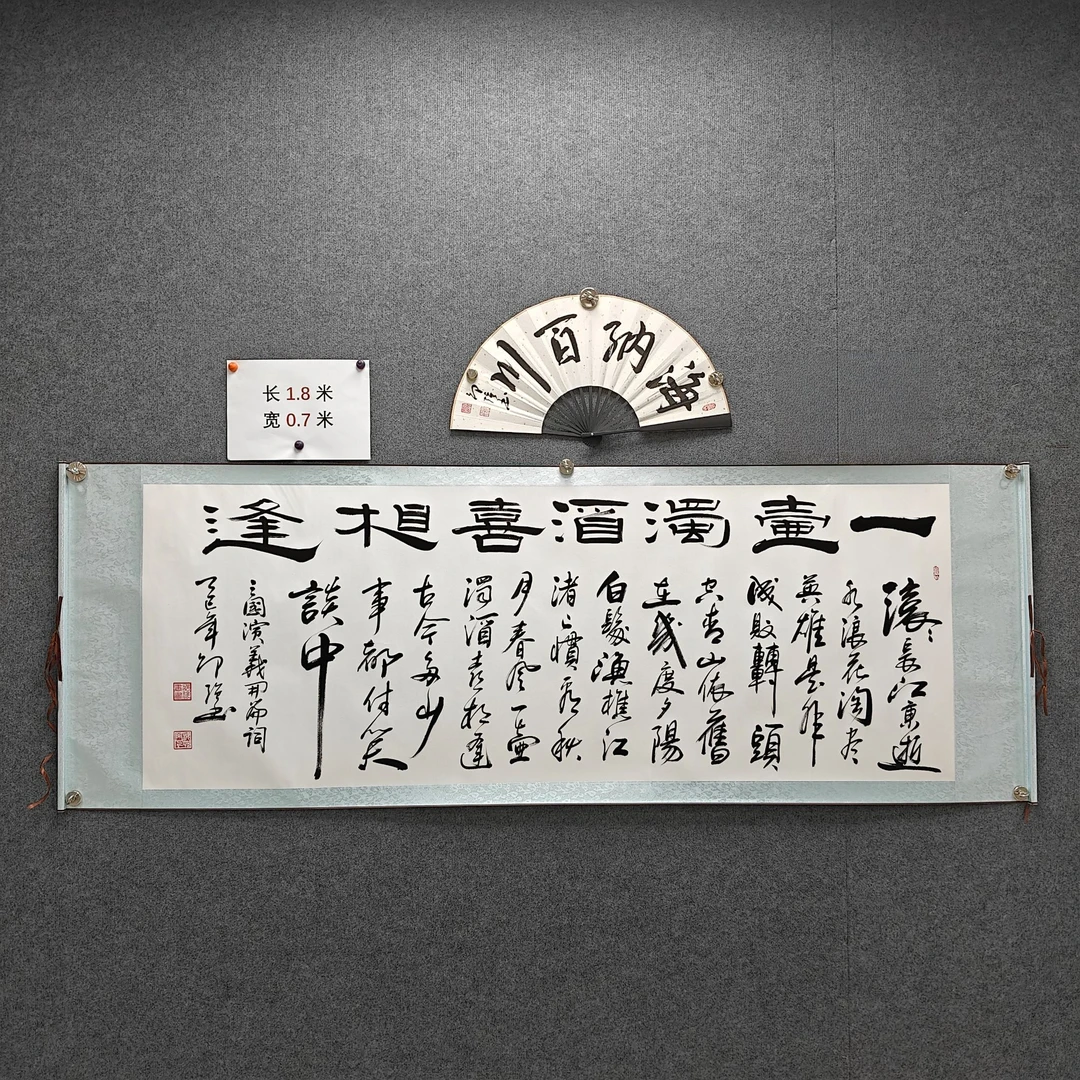 海納百川
长 1.8 米
宽 0.7 米
一壷濁酒喜相逢
滚〻長江東逝
水浪花淘尽
英雄是非
成敗轉頭
空青山依舊
在幾度夕陽
白髮漁樵江
渚上慣看秋
月春風一壷
濁酒喜相逢
古今多少
事都付笑
談中
三國演義開篇詞
乙巳年